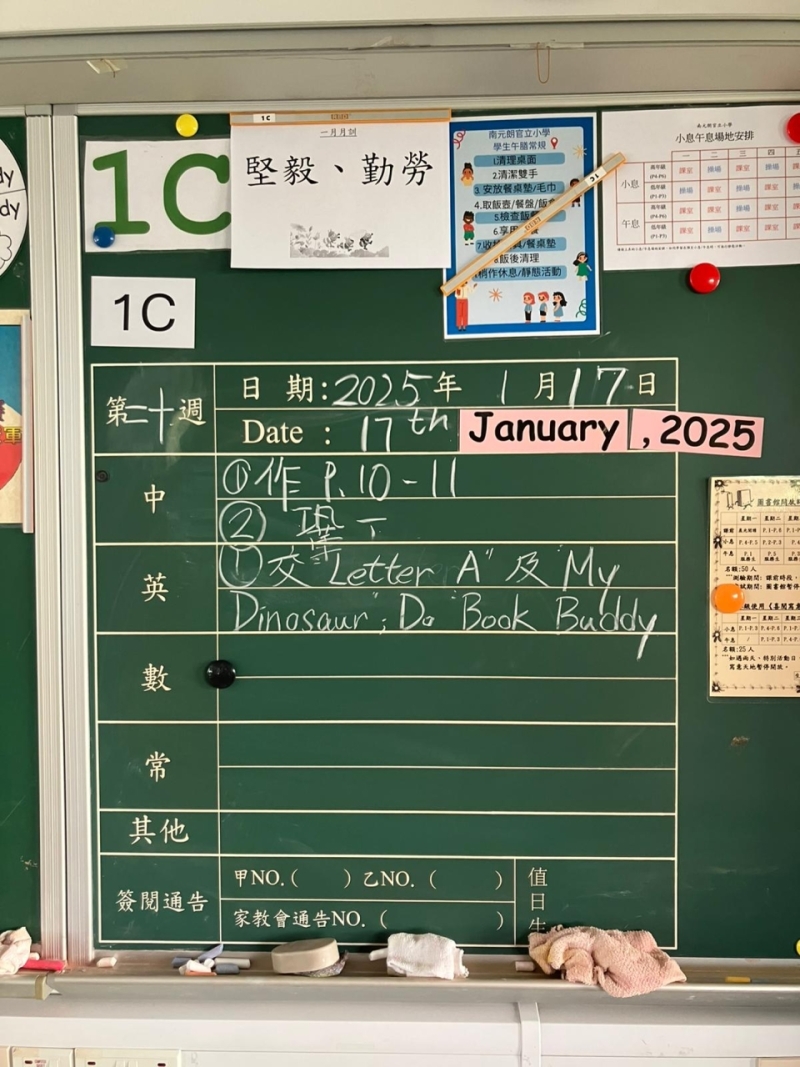 1C
1C
一月月訓
堅毅、勤勞
南元朗官立小學
學生午膳常規
1.清理桌面
2.清潔雙手
3.安放餐桌墊/毛巾
4.取飯壺/餐盤/飯盒
5.檢查飯
6.享用
7.收拾 /餐桌墊
8.飯後清理
稍作休息/靜態活動
南元朗官立小學
小息午息場地安排
一 二 三 四
小息 高年級 (P4-P6) 課室 操場 課室 操場
低年級 (P1-P3) 操場 課室 操場 課室
午息 高年級 (P4-P6) 課室 操場 課室 操場
低年級 (P1-P3) 操場 課室 操場 課室
1C
第二十週 日期:2025年1月17日
Date : 17th January, 2025
中 ①作 P.10-11
② 下
英 ①交 "Letter A" 及 "My
Dinosaur"; Do "Book Buddy
數
常
其他
簽閱通告 甲NO.( ) 乙NO.( )
家教會通告NO.( )
值日生
圖書館開放時
星期一 星期二
小息
午息
名額:50人
星期一 星期二
小息
午息
名額:25人